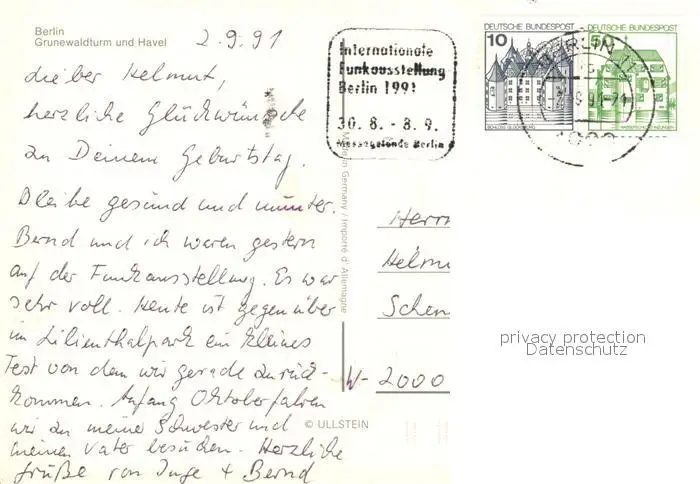 Berlin
Grunewaldturm und Havel
2.9.91
Lieber Helmut,
herzliche Glückwünsche
zu Deinem Geburtstag.
Bleibe gesund und munter.
Bernd und ich waren gestern
auf der Funkausstellung. Es war
sehr voll. Heute ist gegenüber
im Lilienthalpark ein kleines
Fest von dem wir gerade zurück-
kommen. Anfang Oktober fahren
wir zu meine Schwester und
meinen Vater besuchen. Herzliche
Grüße von Inge + Bernd
Internationale
Funkausstellung
Berlin 1991
30. 8. - 8. 9.
Messegelände Berlin
DEUTSCHE BUNDESPOST
10
SCHLOSS GLÜCKSBURG
DEUTSCHE BUNDESPOST
50
WASSERSCHLOSS INZLINGEN
BERLIN
Made in Germany / Importé d'Allemagne
Herrn
Helmu
Schen
W-2000
© ULLSTEIN
privacy protection
Datenschutz